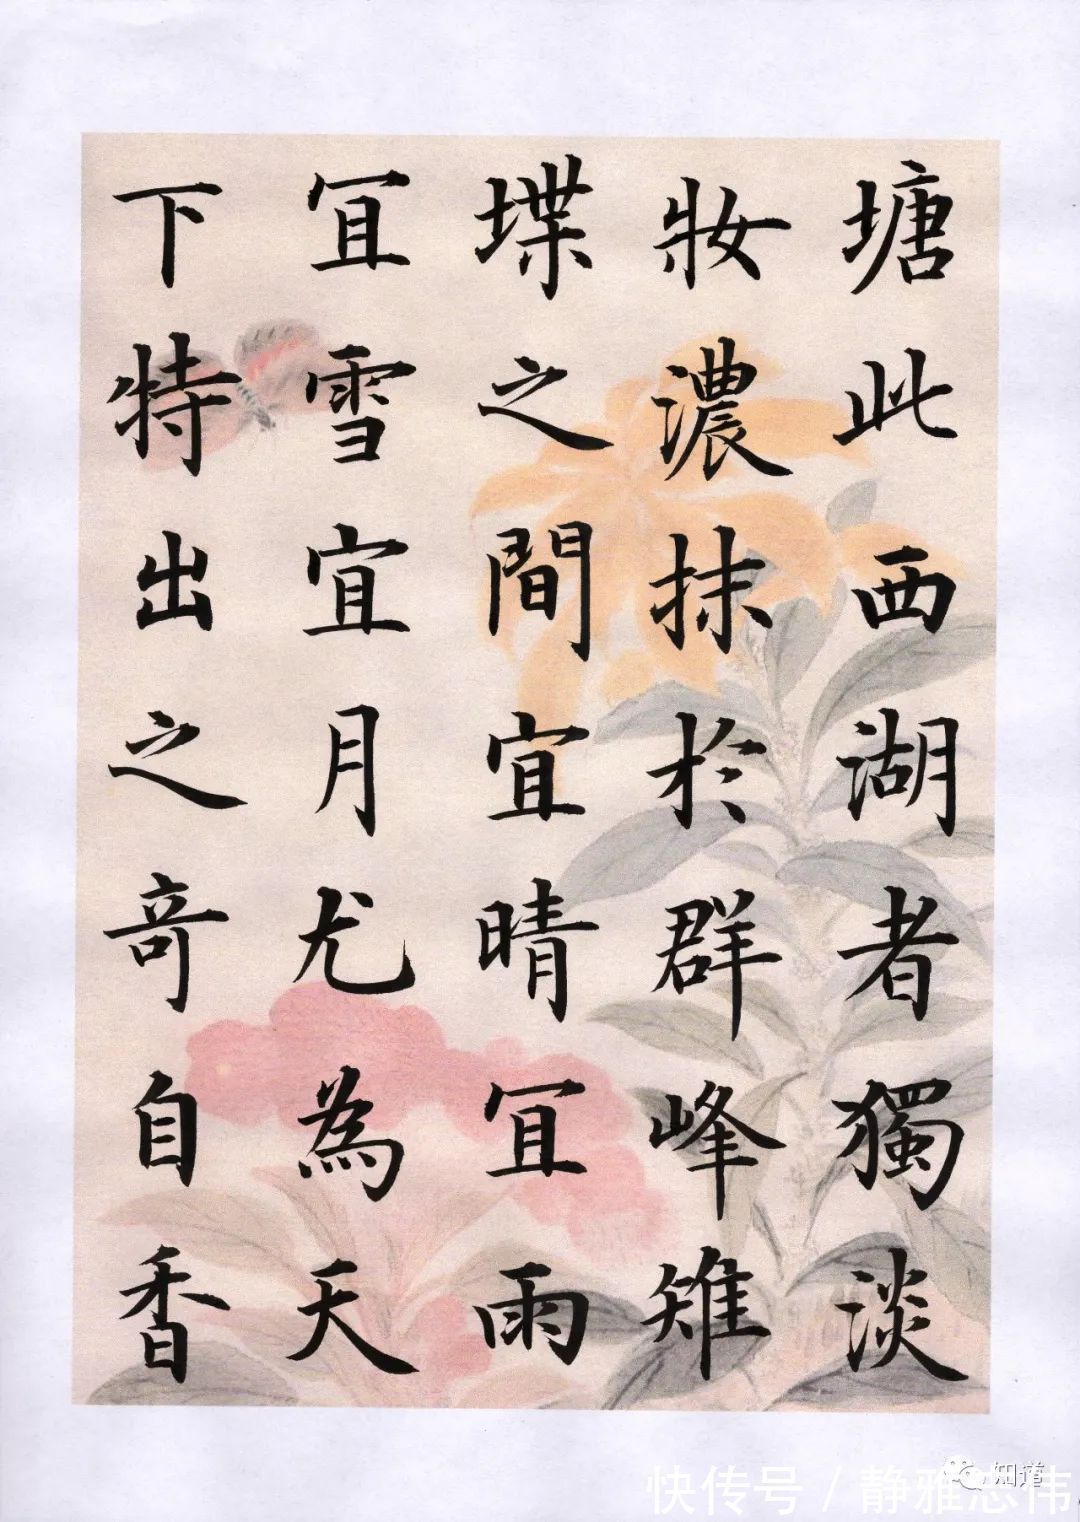 塘此西湖者獨淡
妝濃抹於群峰雉
堞之間宜晴宜雨
宜雪宜月尤為天
下特出之奇自香
知道
快传号／静雅志伟